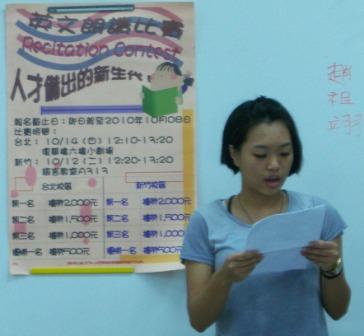 英文朗讀比賽
Recitation Contest
人才備出的新生代
報名截止日：即日起至2010年10月08日
台北： 10/14 (四) 12:10-13:20
新竹： 10/12 (二) 12:20-13:20
A313
台北校區 新竹校區
第一名 禮券2,000元 第一名 禮券2,000元
第二名 禮券1,500元 第二名 禮券1,500元
第三名 禮券1,000元 第三名 禮券1,000元
優勝一名 禮券500元 優勝一名 禮券500元
趙
祖
翊